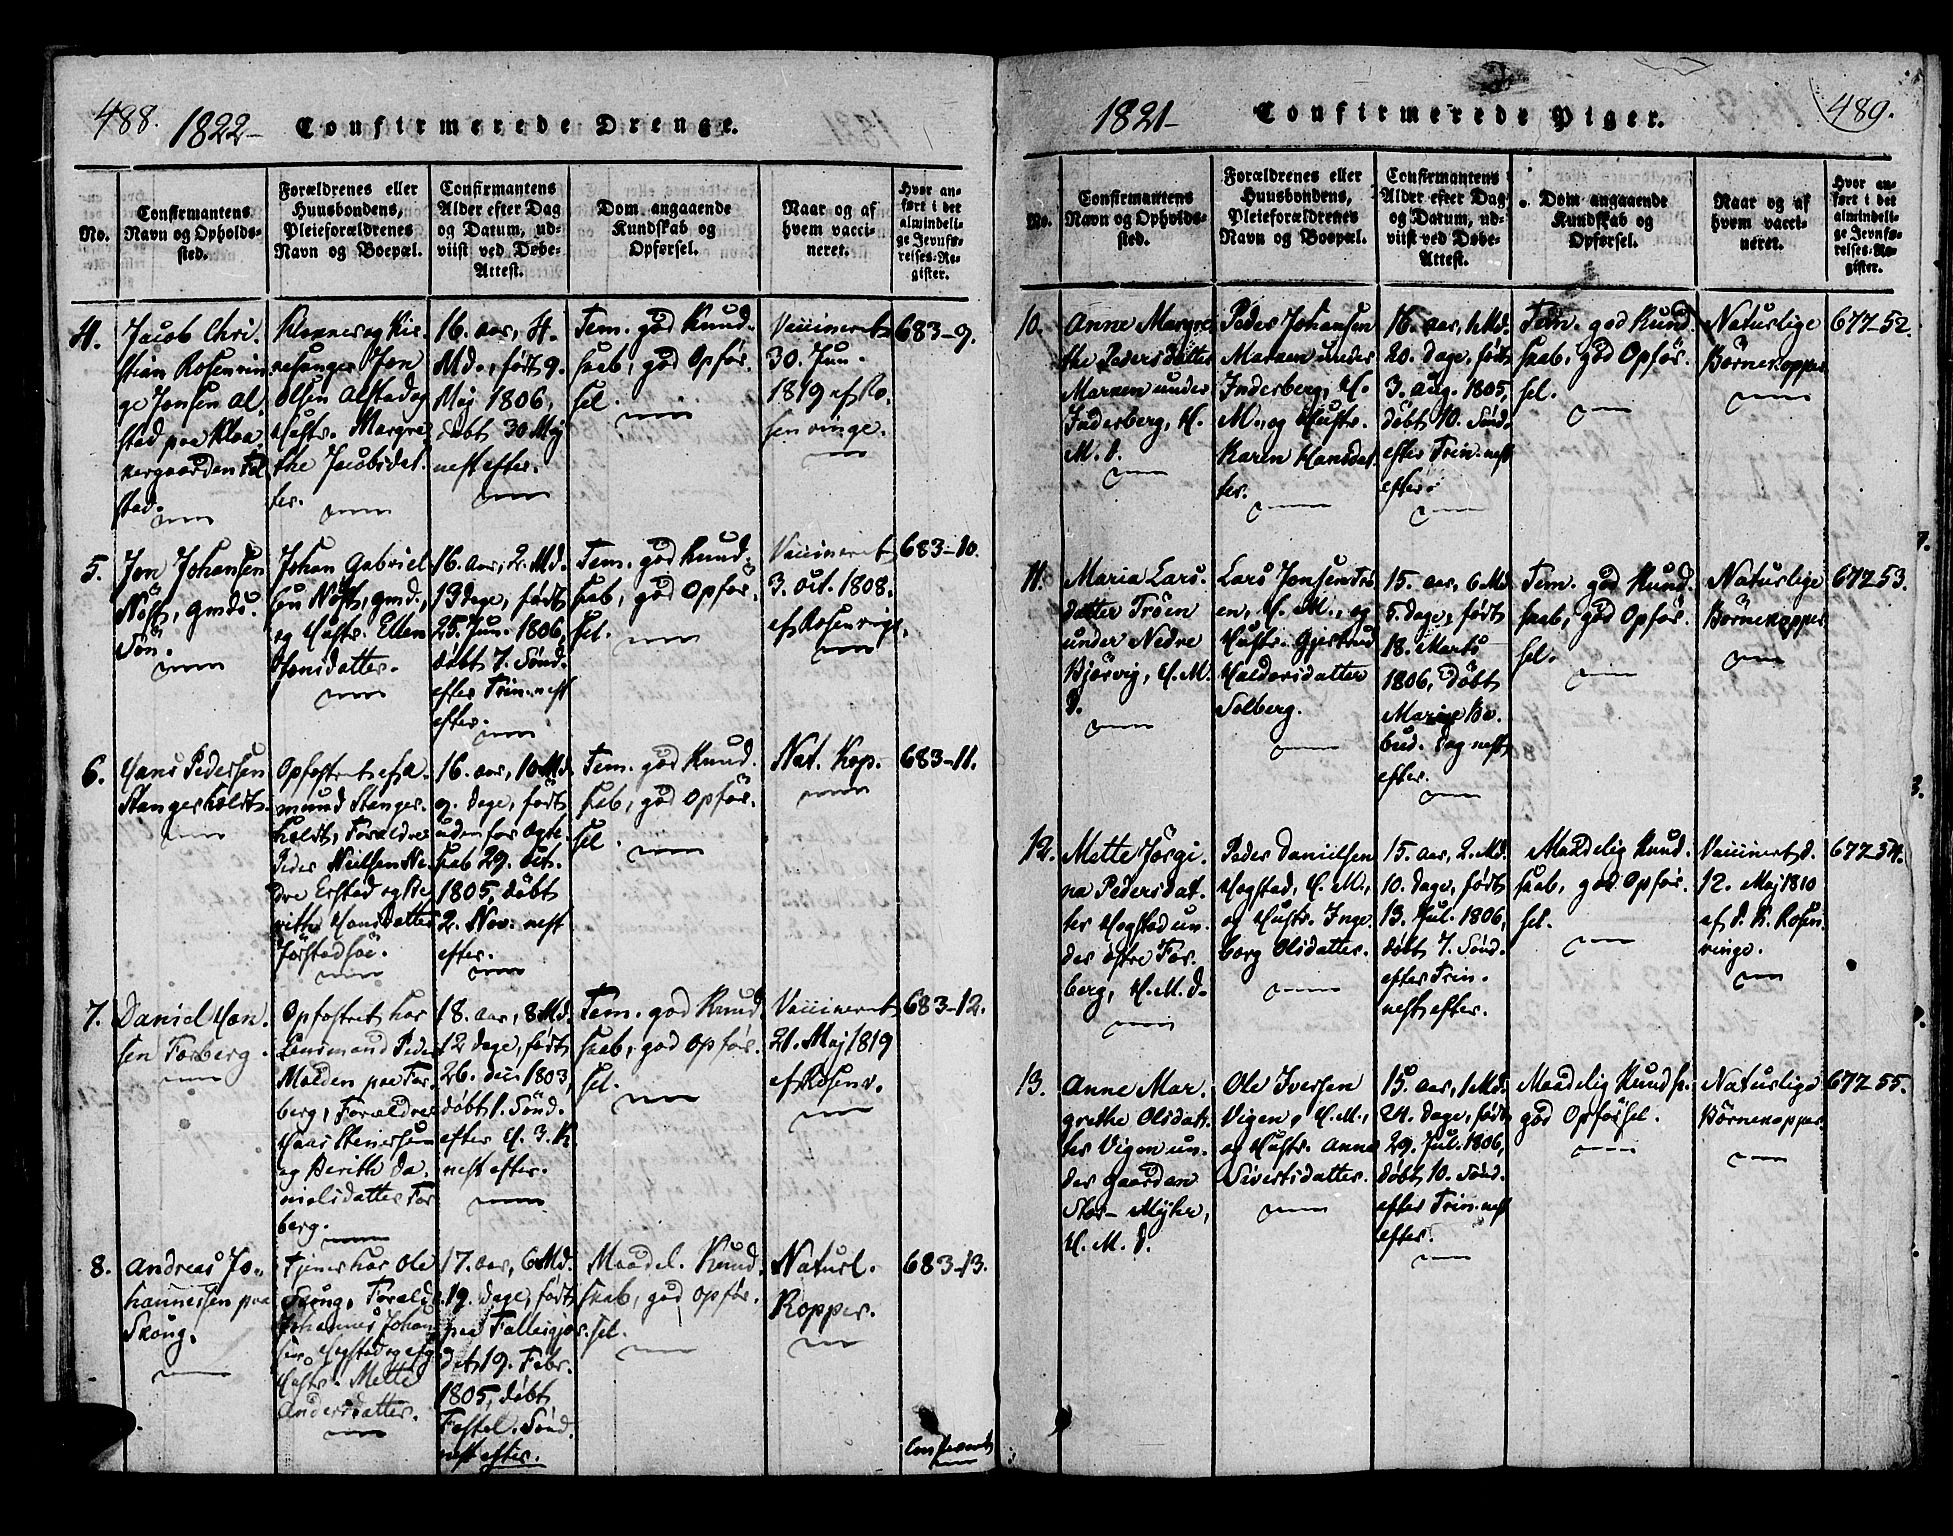 488.
1822-
Confirmerede Drenge.
No.
Confirmantens
Navn og Opholds-
sted.
Forældrenes eller
Huusbondens,
Pleieforældrenes
Navn og Boepæl.
Confirmantens
Alder efter Dag
og Datum, ud-
viist ved Døbe-
Attest.
Dom angaaende
Kundskab og
Opførsel.
Naar og af
hvem vacci-
neret.
Hvor an-
ført i det
almindeli-
ge Jevnfø-
relses-Re-
gister.
4.
Jacob Chri-
stian Rosenvin
ge Jonsen Al-
stad paa Kloa-
kergaarden
stad.
Klokker og Kir-
kesanger Jon
Olsen Alstad og
Hustr. Margre
the Jacobsdat-
ter.
16. aar, 4.
Md., født 9.
Maj 1806,
døbt 30 Maj
nest efter.
Tem. god Kund-
skab, god Opför-
sel.
Vaccineret
30. Jun.
1819 af Ro-
senvinge.
683-9.
5.
Jon Johansen
Nöst, gmds.
Sön.
Johan Gabriel-
sen Nöst, gmd.,
og Hustr. Ellen
Jonsdatter.
16. aar, 2. Md.
13 dage, født
25. Jun. 1806,
döbt 7. Sönd.
efter Trin. nest
efter.
Tem. god Kund-
skab, god Opför-
sel.
Vaccineret
3. oct. 1808.
af Rosenvige.
683-10.
6.
Hans Pedersen
Stangerholdt.
Opfostret af A-
mund Stanger-
holdt, Forældre
Peder Neilsen Ne-
dre Erstad og Be
rith Hansdatter
Förstadsöe.
16. aar, 10 Md.
9. dage, født
udenfor Ægte-
skab 29. Oct.
1805, døbt
2. Nov. nest
efter.
Tem. god Kund-
skab, god Opför-
sel.
Nat. Kop.
683-11.
7.
Daniel Han-
sen Forberg.
Opfostret hos
Lensmand Peder
Molden paa For-
berg, Forældre
Haas Steiersen
og Berith Da-
nielsdatter For
berg.
18. aar, 8 Md.
12 dage, født
26. dec. 1803,
døbt 1. Sönd.
efter H. 3. K.
nest efter.
Tem. god Kund
skab, god Opför-
sel.
Vaccineret
21. Maj 1819
af Rosenv.
683-12.
8.
Andreas Jo-
hannessen paa
Skoug.
Tjener hos Ole
Skoug, Foræld.
Johannes Johan
sen Hogstad og
Hustr. Mette
Andersdatter.
17. aar, 6 Md.
19. dage, født
paa Fallesgjær-
det 19. Febr.
1805, døbt
Fastel. Sönd.
nest efter.
Maadel. Kund-
skab, god Opför-
sel.
Naturl.
Kopper.
683-13.
Confereret
1821-
Confirmerede Piger.
489.
No.
Confirmantens
Navn og Opholds-
sted.
Forældrenes eller
Huusbondens,
Pleieforældrenes
Navn og Boepæl.
Confirmantens
Alder efter Dag
og Datum, ud-
viist ved Døbe-
Attest.
Dom angaaende
Kundskab og
Opførsel.
Naar og af
hvem vacci-
neret.
Hvor an-
ført i det
almindeli-
ge Jevnfø-
relses-Re-
gister.
10.
Anne Margre
the Pedersdatter
Marken under
Inderberg, H.
M. d.
Peder Johansen
Marken under
Inderberg, H.
M., og Hustr.
Karen Hansdat-
ter.
16. aar, 1 Md.
20. dage, født
3. Aug. 1805,
döbt 10. Sönd.
efter Trin. nest
efter.
Tem. god Kund-
skab, god Opför-
sel.
Naturlige
Börnekopper
677-52.
11.
Maria Lars-
datter Tröen
under Nedre
Björvig, H. M.
d.
Lars Jonsen Trö
en, H. M., og
Hustr. Gjertrud
Haldorsdatter
Solberg.
15. aar, 6 Md
5. dage, født
18. Marts
1806, döbt
Mariæ Be-
bud. Dag nest
efter.
Tem. god Kund-
skab, god Opför-
sel.
Naturlige
Börnekopper
677-53.
12.
Mette Jörgi-
na Pedersdat-
ter Hogstad un-
der östre For-
berg, H. M. d.
Peder Danielsen
Hogstad, H. M.,
og Hustr. Inge
borg Olsdatter.
15. aar, 2. Md.
10. dage, født
13. Jul. 1806,
døbt 7. Sönd.
efter Trin.
nest efter.
Maadelig Kund-
skab, god Opför-
sel.
Vaccineret d.
12. Maj 1810
af d. K. Rosen-
vinge.
677-54.
13.
Anne Mar-
grethe Olsdat-
ter Vigen un-
der Gaarden
Stor-Myhr,
H. M. d.
Ole Iversen
Vigen, H. M.,
og Hustr. Anne
Sivertsdatter.
15. aar, 1 Md.
24. dage, født
29. Jul. 1806,
döbt 10. Sönd.
efter Trin. nest
efter.
Maadelig Kundsk.
god Opförsel.
Naturlige
Börnekopper.
677-55.